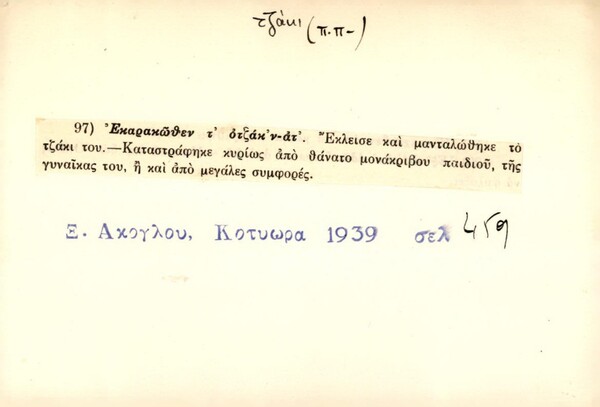 τζάκι (π.π-)
97) Ἐκαρακῶθεν τ' ὀτζάκ'ν-ἀτ'. Ἔκλεισε καὶ μανταλώθηκε τὸ
τζάκι του.—Καταστράφηκε κυρίως ἀπὸ θάνατο μονάκριβου παιδιοῦ, τῆς
γυναίκας του, ἢ καὶ ἀπὸ μεγάλες συμφορές.
Ξ. Ακογλου, Κοτυωρα 1939 σελ 459